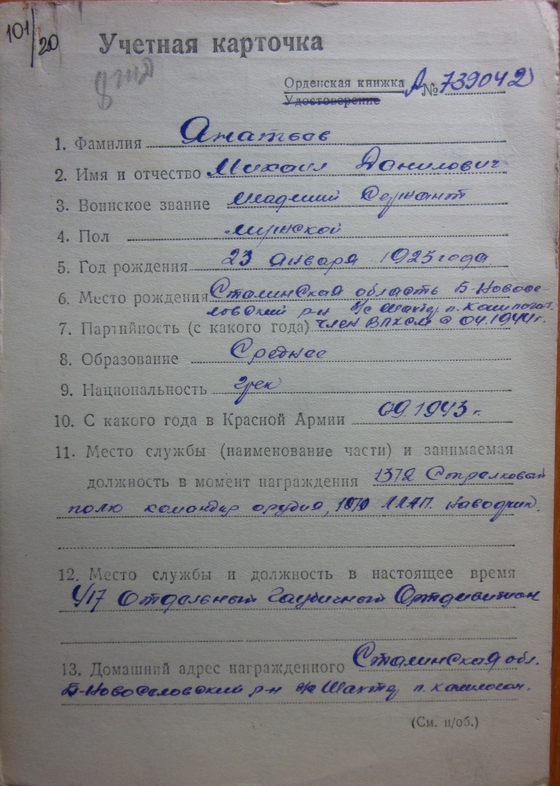 101/20
Учетная карточка
Орденская книжка А № 739042
Удостоверение
1. Фамилия Анатьев
2. Имя и отчество Михаил Данилович
3. Воинское звание Младший Сержант
4. Пол мужской
5. Год рождения 23 января 1925 года
6. Место рождения Сталинская область Б-Новосе-
ловский р-н п.
7. Партийность (с какого года) член ВЛКСМ с 04.1944г.
8. Образование Среднее
9. Национальность грек
10. С какого года в Красной Армии 09.1943 г.
11. Место службы (наименование части) и занимаемая
должность в момент награждения 1372 Стрелковый
полк командир орудия, 1870 Наводчик.
12. Место службы и должность в настоящее время
417 Отдельный Гаубичный Артдивизион
13. Домашний адрес награжденного Сталинская обл.
Б-Новоселовский р-н п.
(См. н/об.)